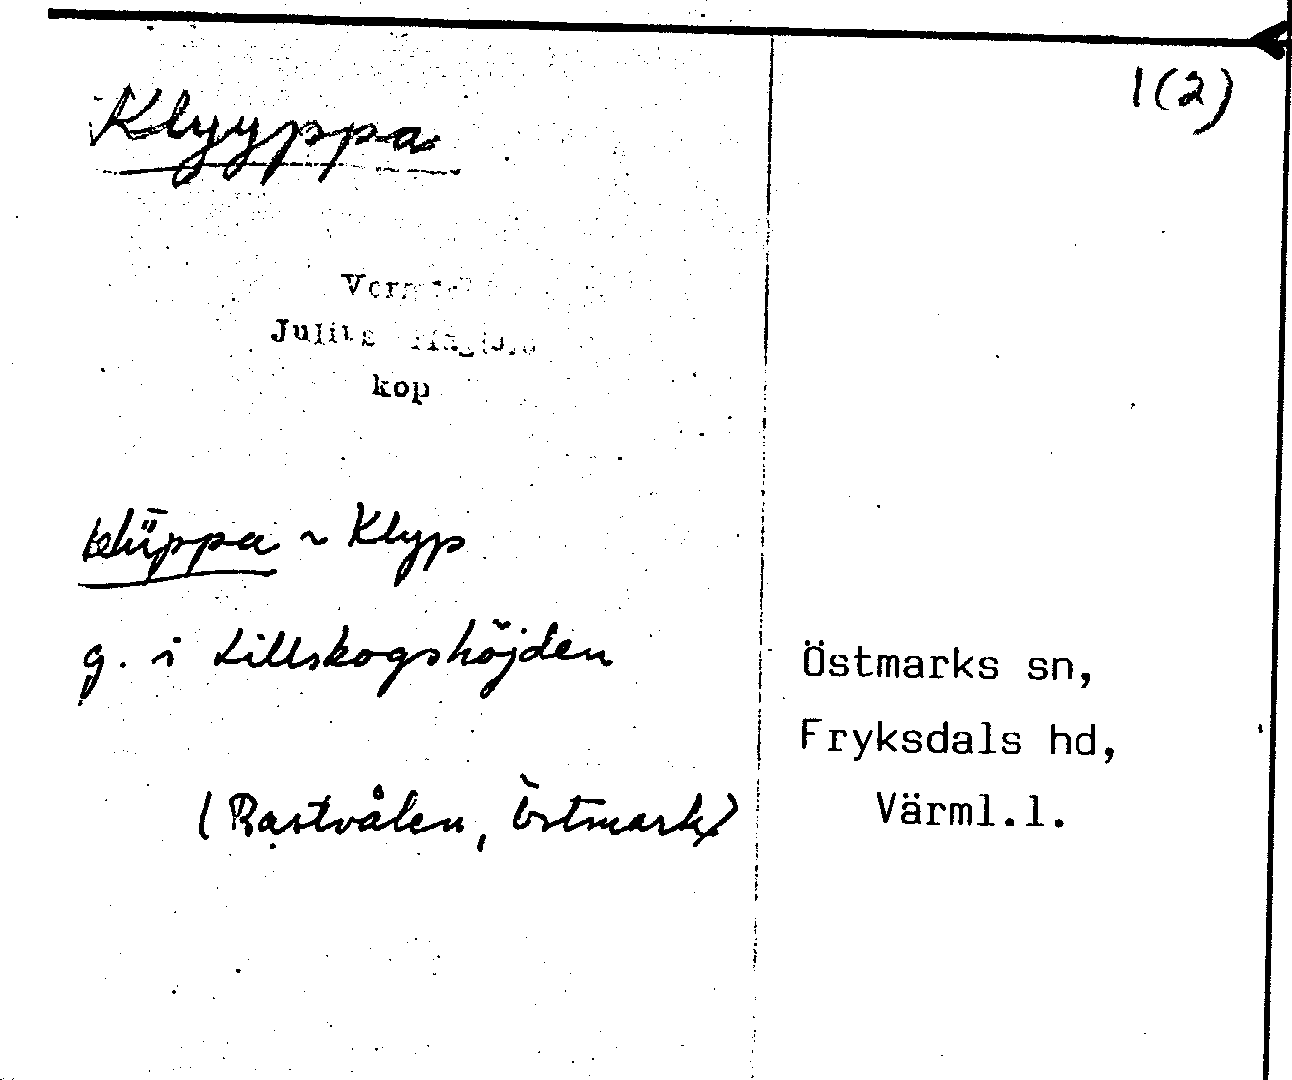 1(2)
Klyyppa
Julius
kop
klüppa ~ Klyp
g. i Lillskogshöjden
(Rastvålen, Östmark)
Östmarks sn,
Fryksdals hd,
Värml.l.